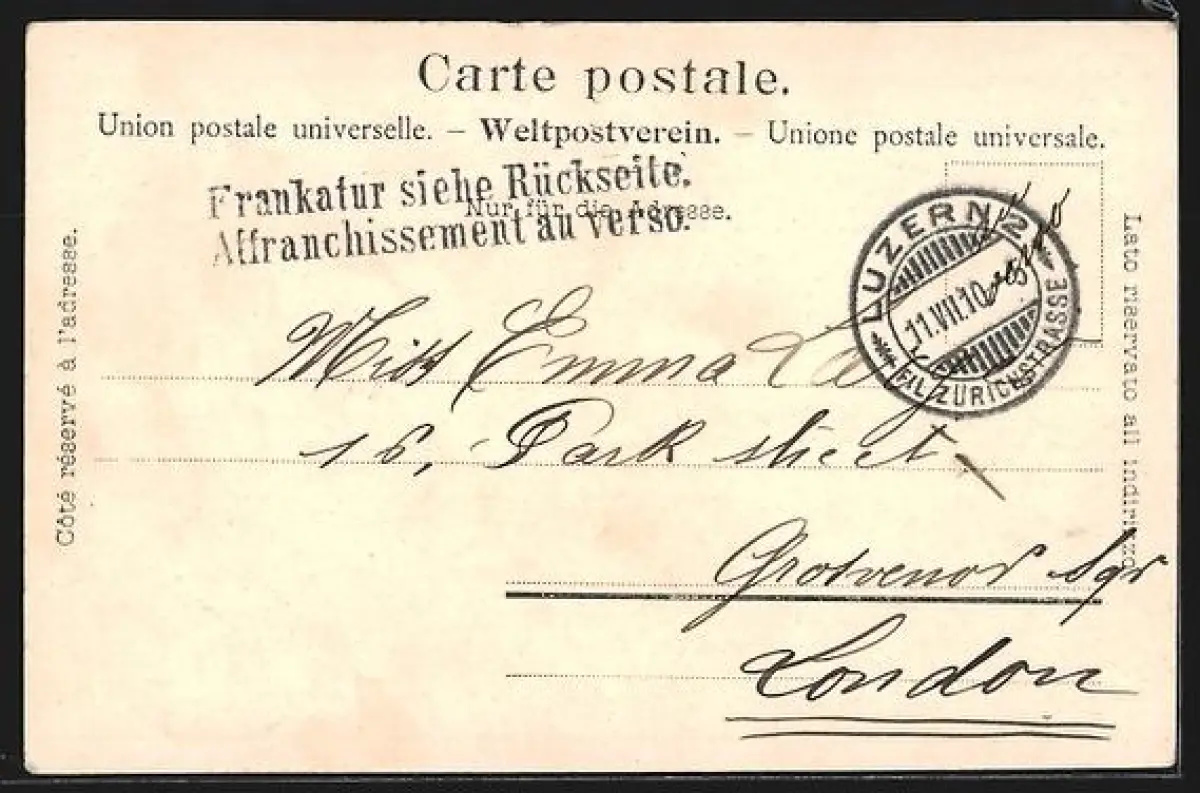 Carte postale.
Union postale universelle. – Weltpostverein. – Unione postale universale.
Frankatur siehe Rückseite.
Nur für die Adresse.
Affranchissement au verso.
Côté réservé à l'adresse.
LUZERN 2
11.VII.10
FIL. ZÜRICHSTRASSE
Lato riservato all indirizzo
Miss Emma
16, Park street
Grosvenor Sqr
London